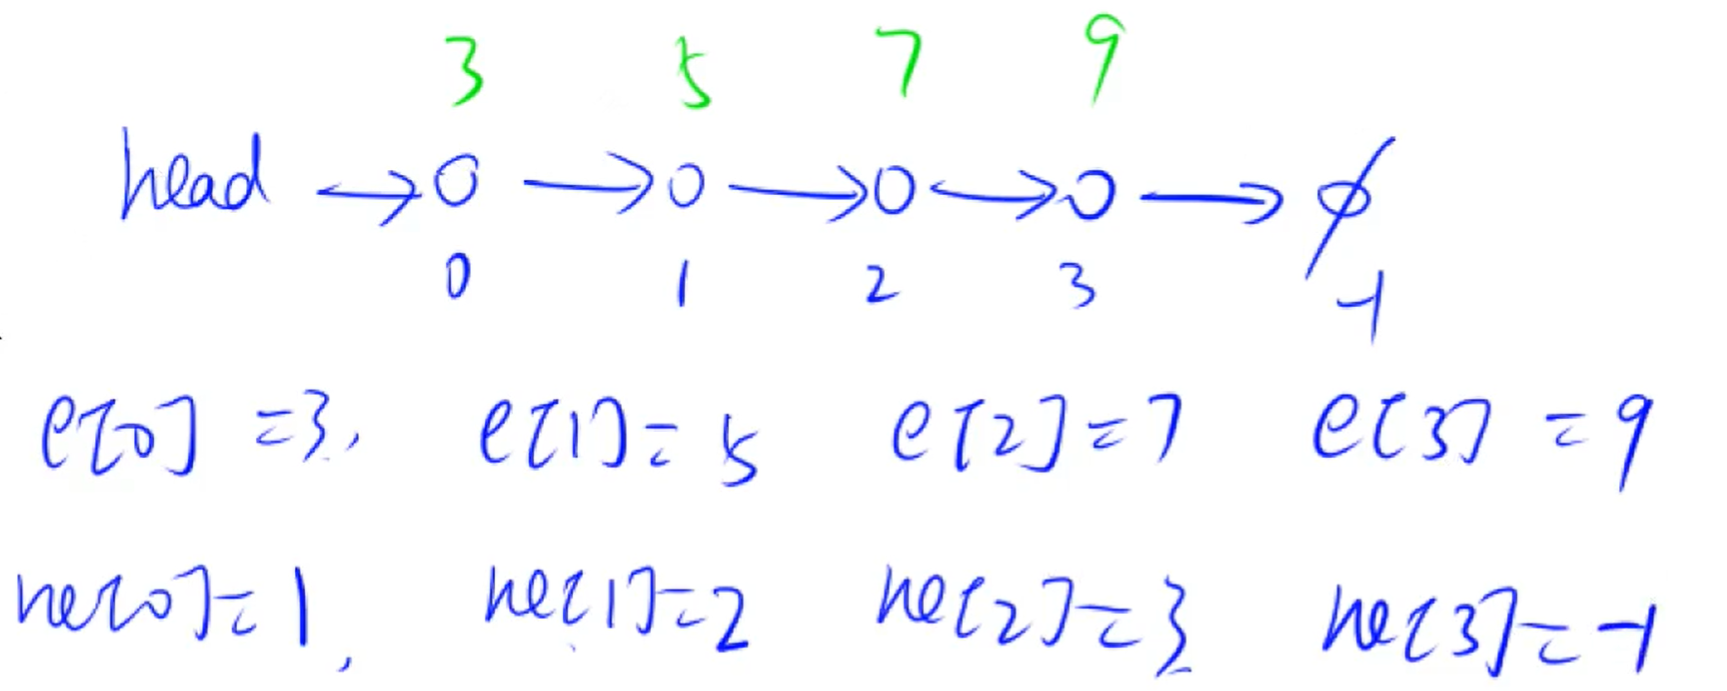 3 5 7 9
head → o → o → o → o → ∅
0 1 2 3 -1
e[0] = 3, e[1] = 5 e[2] = 7 e[3] = 9
ne[0] = 1, ne[1] = 2 ne[2] = 3 ne[3] = -1